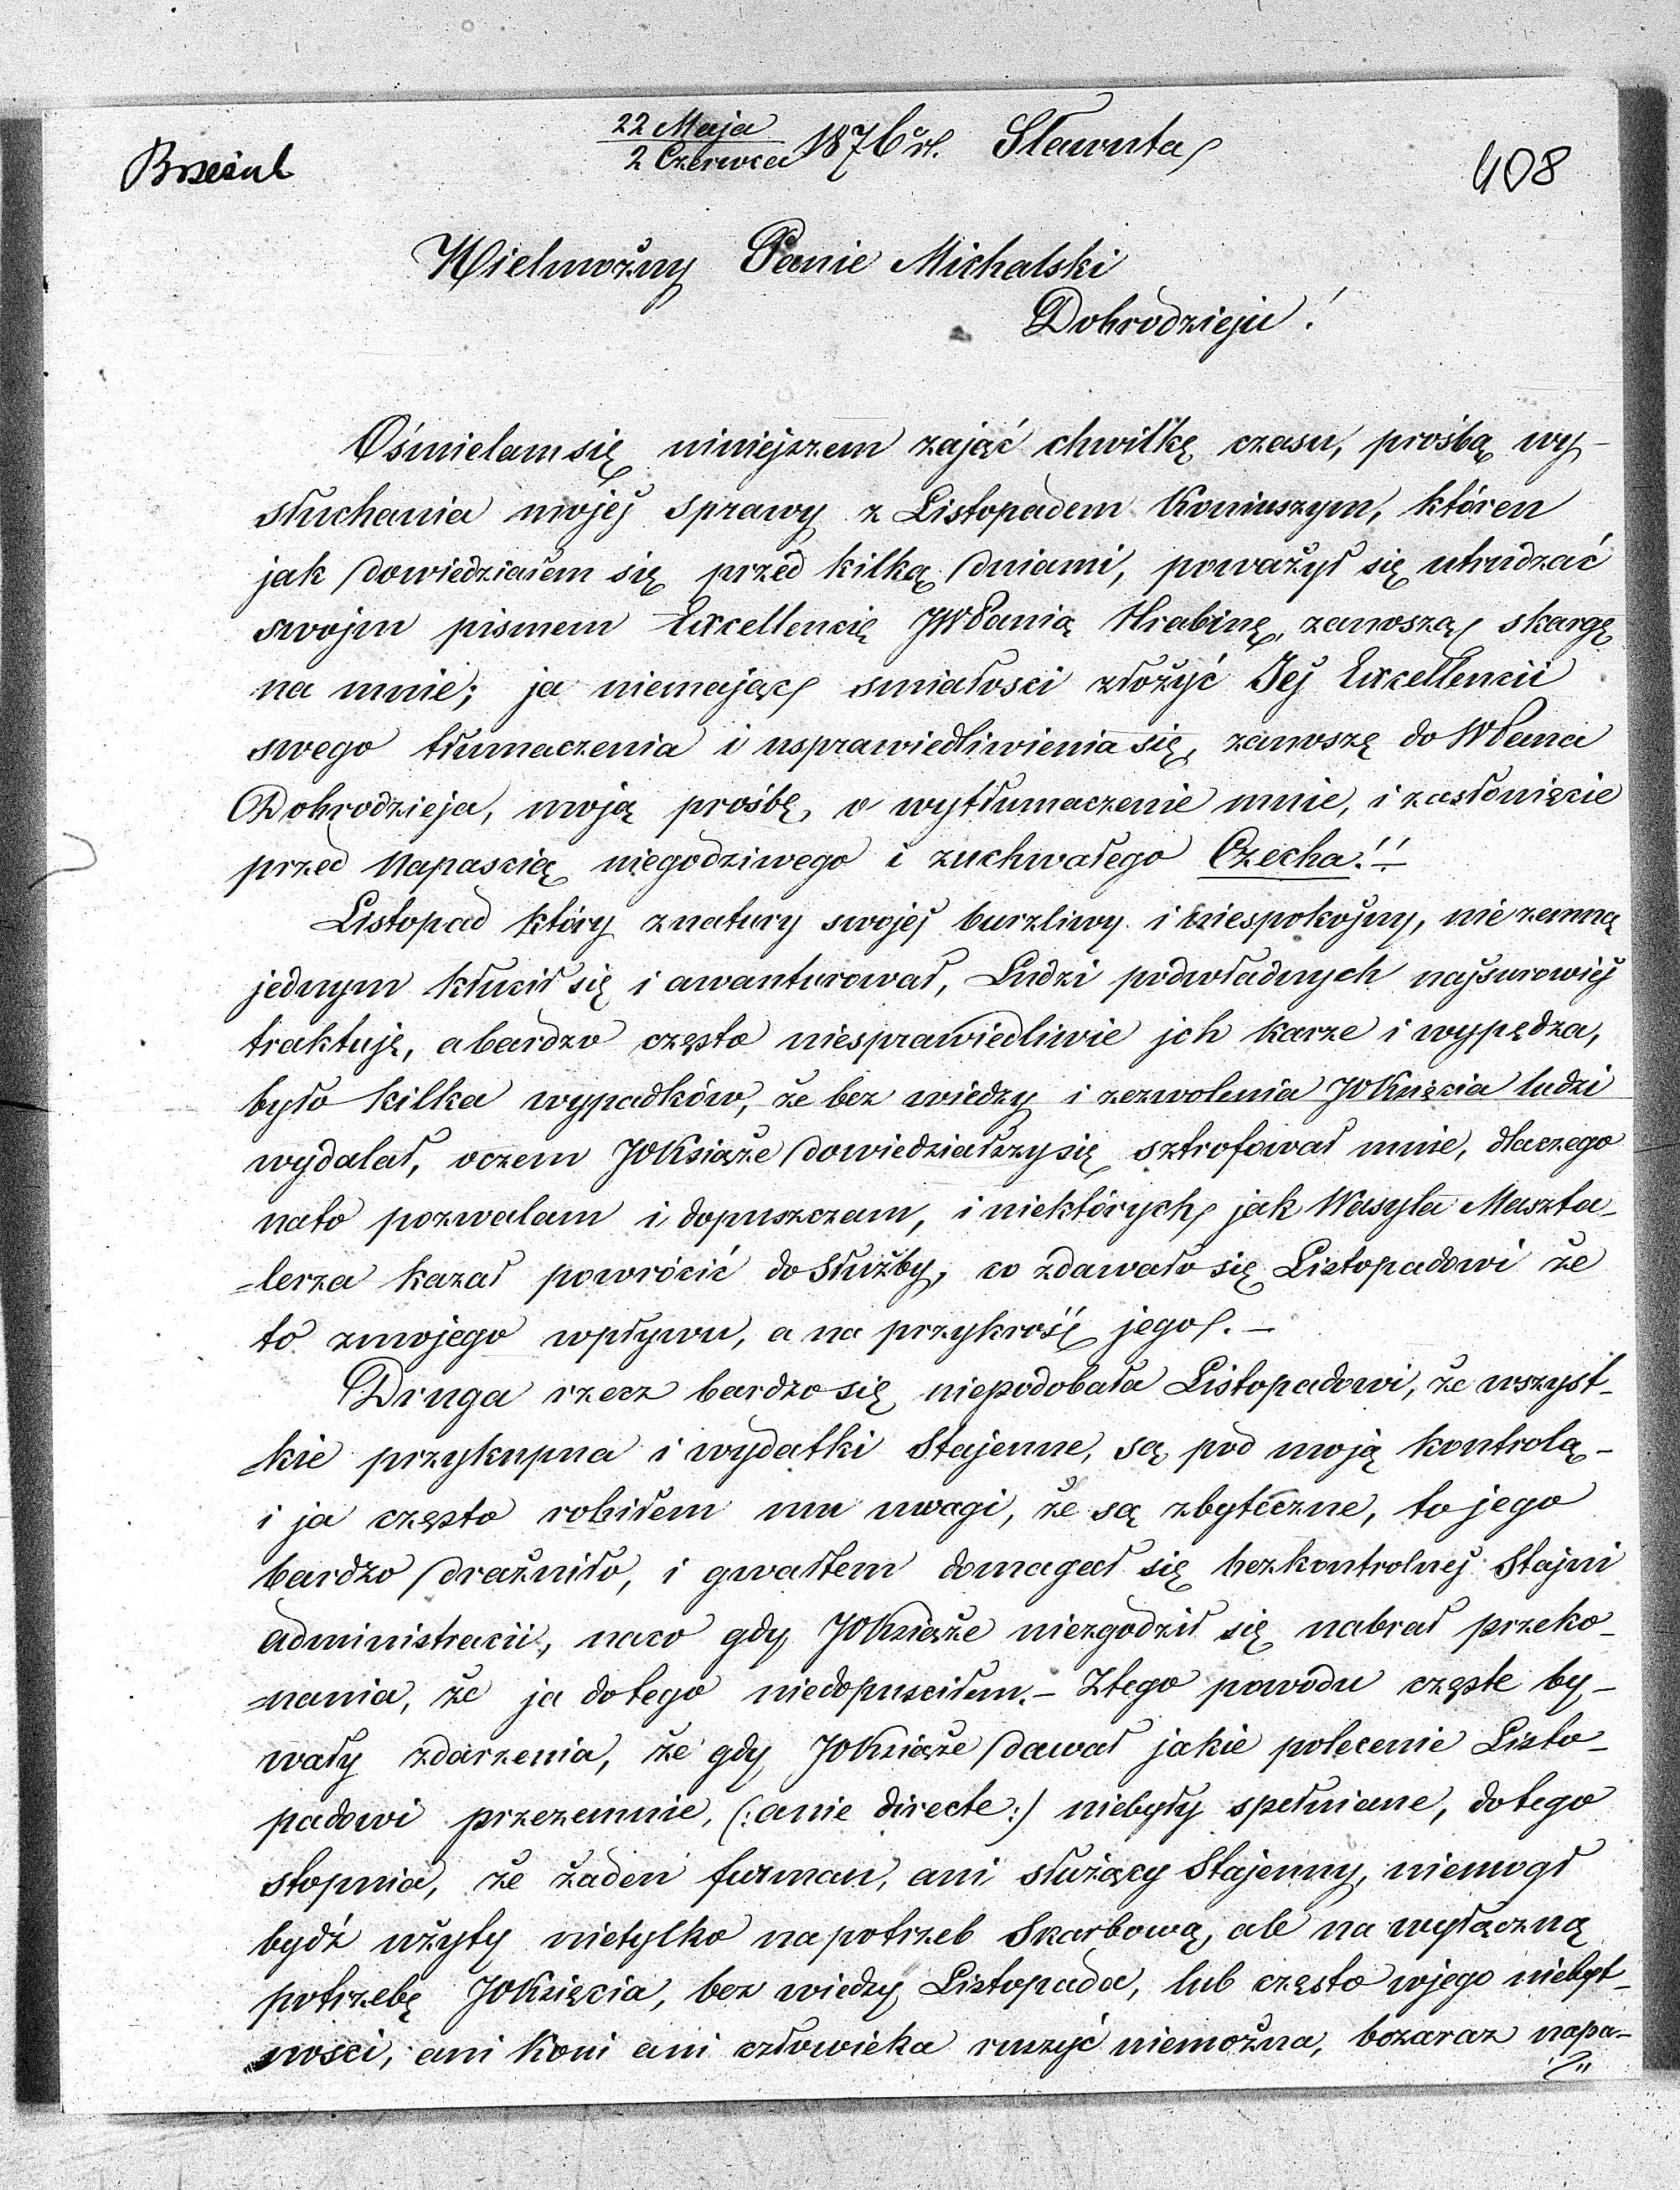 22 Maja
2 Czerwca 1876 r. Sławuta
408
Wielmożny Panie Michalski
Dobrodzieju!
Ośmielam się niniejszem zająć chwilkę czasu, prośbą wy-
słuchania mojéj sprawy z Listopadem Koniuszym, któren
jak dowiedziałem się przed kilką dniami, poważył się utrudzać
swojm pismem Excellencię JWPanią Hrabinę, zanosząc skargę
na mnie; ja niemając smiałosci złożyć Jéj Excellencii
swego tłumaczenia i usprawiedliwienia się, zanoszę do WPana
Dobrodzieja, moją prośbę, o wytłumaczenie mnie, i zasłonięcie
przed Napascią niegodziwego i zuchwałego Czecha!!
Listopad który znatury swojéj burzliwy i niespokojny, nie zemną
jednym kłucił się i awanturował, Ludzi podwładnych najsurowiéj
traktuję, a bardzo często niesprawiedliwie jch karze i wypędza,
było kilka wypadków, że bez wiedzy i zezwolenia JOKsięcia ludzi
wydalał, oczem JOKsiąże dowiedziałszy się, sztrofował mnie, dlaczego
nato pozwalam i dopuszczam, i niektórych jak Wasyla Maszta-
-lerza kazał powrócić do Służby, co zdawało się Listopadowi że
to zmojego wpływu, a na przykrość jego. –
Druga rzecz bardzo się niepodobała Listopadowi, że wszyst-
-kie przykupna i wydatki Stajenne, są pod moją kontrolą –
i ja często robiłem mu uwagi, że są zbyteczne, to jego
bardzo drażniło, i gwałtem domagał się bezkontrolnéj Stajni
administracii, naco gdy JOKsiąże niezgodził się nabrał przeko-
-nania, że ja dotego niedopuściłem. – Ztego powodu częste by-
wały zdarzenia, że gdy JOKsiąże dawał jakie polecenie Listo-
padowi przezemnie, (:anie directe:) niebyły spełniane, dotego
stopnia, że żaden furman, ani służący Stajenny, niemogł
bydź użyty nietylko na potrzeb Skarbową, ale na wyłączną
potrzebę JOKsięcia, bez wiedzy Listopada, lub często wjego niebyt-
ności, ani Koni ani człowieka ruszyć niemożna, bozaraz napa-